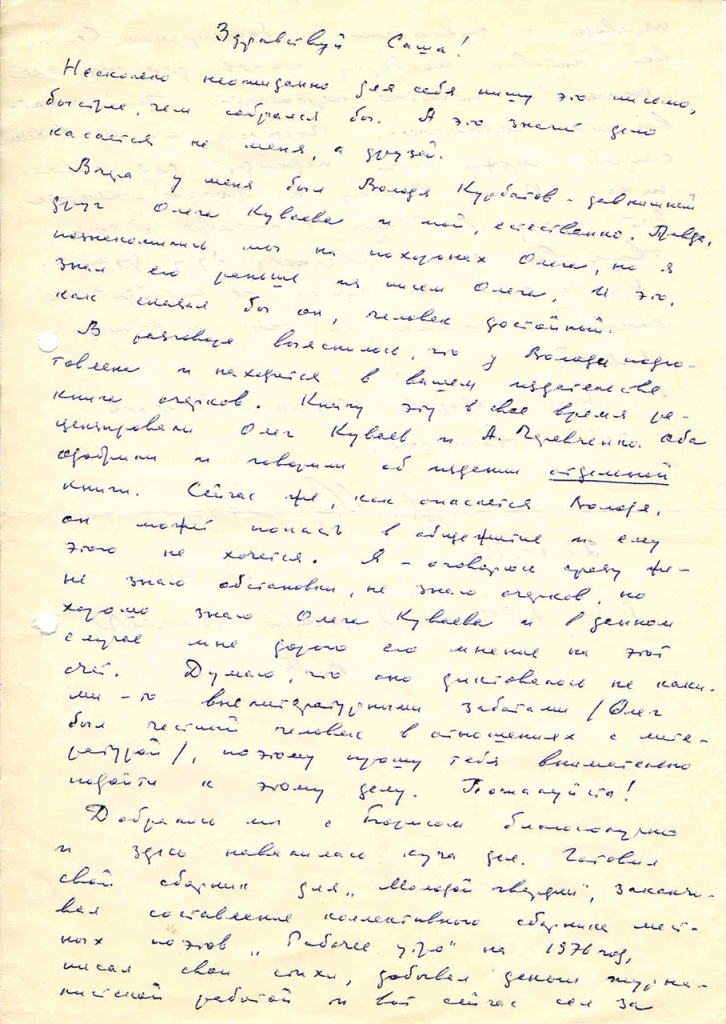 Здравствуй Саша!
Несколько неожиданно для себя пишу это письмо,
быстрее, чем собрался бы. А это значит дело
касается не меня, а друзей.
Вчера у меня был Володя Курбатов - давнишний
друг Олега Куваева и мой, естественно. Правда,
познакомились мы на похоронах Олега, но я
знал его раньше из писем Олега. И это,
как сказал бы он, человек достойный.
В разговоре выяснилось, что у Володи подго-
товлена и находится в вашем издательстве
книга очерков. Книгу эту в свое время ре-
цензировали Олег Куваев и А. Черевченко. Оба
одобрили и говорили об издании отдельной
книги. Сейчас же, как опасается Володя,
он может попасть в общежитие и ему
этого не хочется. Я - оговорюсь сразу же -
не знаю обстановки, не знаю очерков, но
хорошо знаю Олега Куваева и в данном
случае мне дорого его мнение на этот
счет. Думаю, что оно диктовалось не каки-
ми-то внелитературными заботами /Олег
был честный человек в отношениях с лите-
ратурой/, поэтому прошу тебя внимательно
подойти к этому делу. Пожалуйста!
Добрались мы с Борисом благополучно
и здесь навалилась куча дел. Готовил
свой сборник для „Молодой гвардии", заканчи-
вал составление коллективного сборника мест-
ных поэтов „Рабочее утро" на 1976 год,
писал свои стихи, добывал деньги журна-
листской работой и вот сейчас сел за